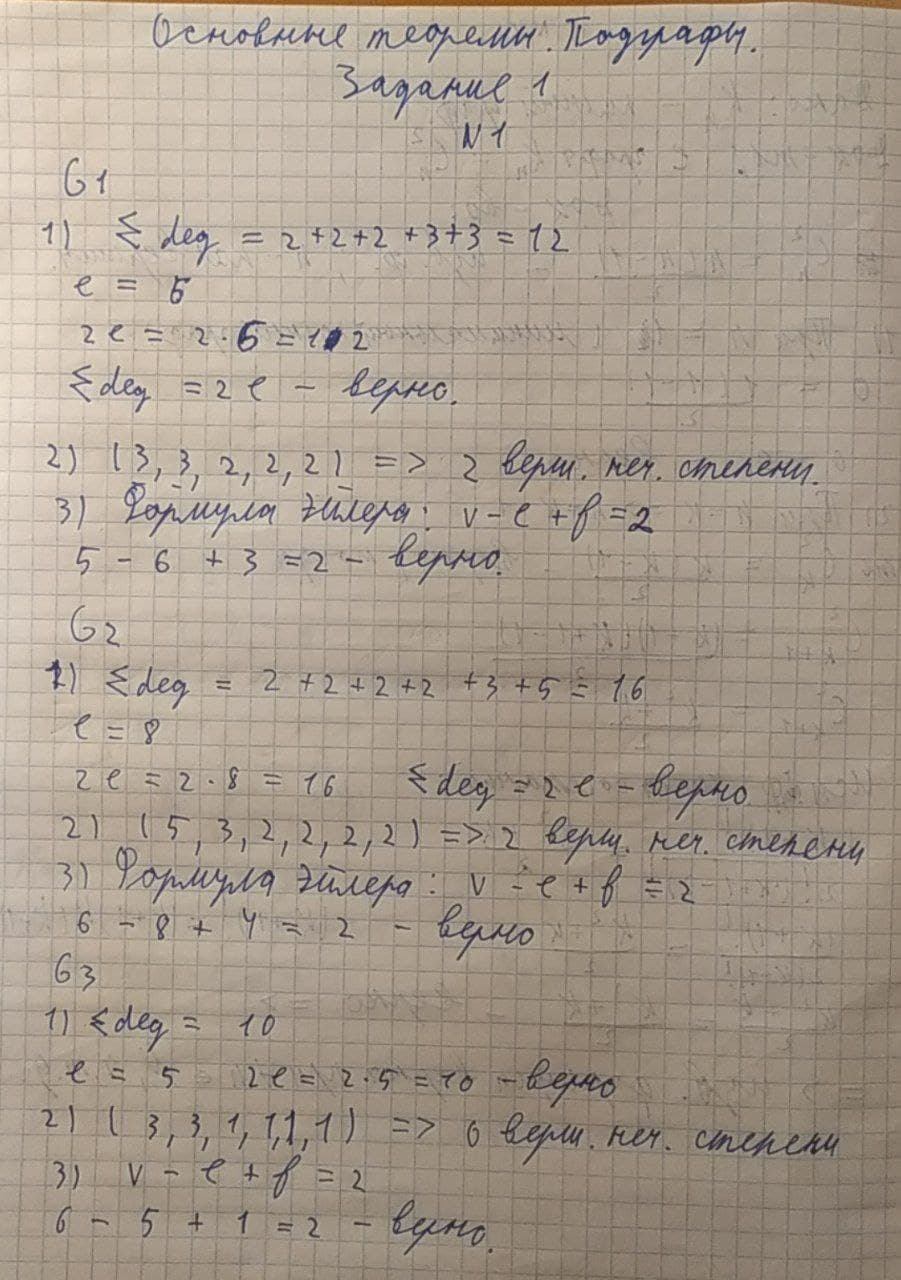 Основные теоремы. Подграфы.
Задание 1
N1
G1
1) Σ deg = 2+2+2+3+3=12
e = 6
2e = 2·6=12
Σdeg = 2e - верно.
2) (3, 3, 2, 2, 2) => 2 верш. неч. степени.
3) Формула Эйлера: v-e+f=2
5 - 6 + 3 = 2 - верно.
G2
1) Σdeg = 2 +2+2+2 +3+5 = 16
e = 8
2e = 2·8 = 16 Σdeg = 2e - верно
2) (5, 3, 2, 2, 2, 2) => 2 верш. неч. степени
3) Формула Эйлера: v - e + f = 2
6 - 8 + 4 = 2 - верно
G3
1) Σdeg = 10
e = 5 2e = 2·5 = 10 - верно
2) (3, 3, 1, 1, 1, 1) => 6 верш. неч. степени
3) v - e + f = 2
6 - 5 + 1 = 2 - верно.